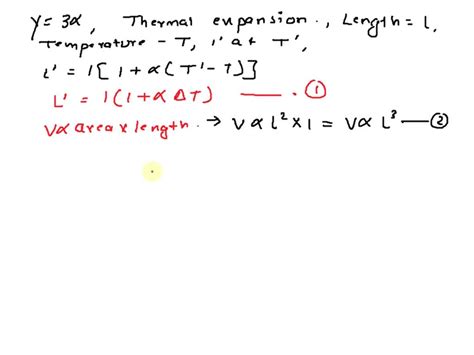 γ= 3α, Thermal expansion., Length = l,
Temperature - T, l' at T',
L' = l[1+α(T'-T)]
L' = l(1+αΔT) —— . ①
V∝ area x length. → V∝ l² x l = V∝ L³ —— ②